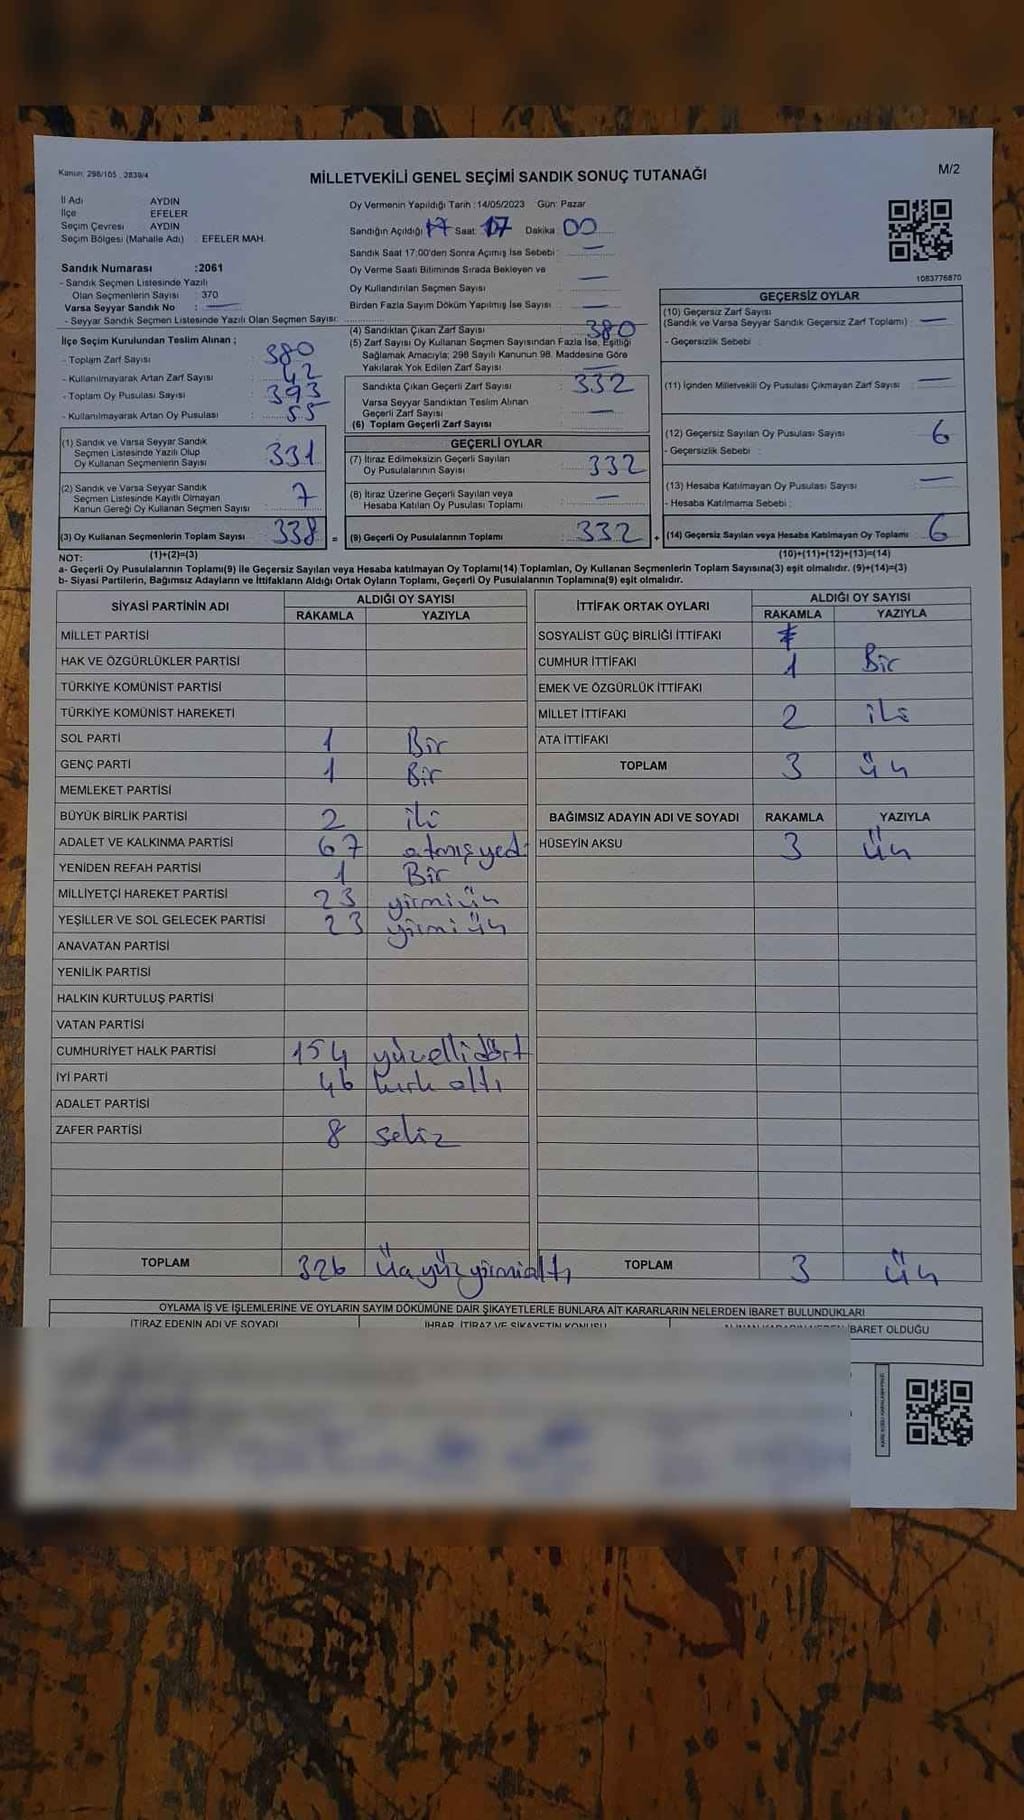 Kanun: 298/105 , 2839/4
MİLLETVEKİLİ GENEL SEÇİMİ SANDIK SONUÇ TUTANAĞI
M/2
İl Adı AYDIN
İlçe EFELER
Seçim Çevresi AYDIN
Seçim Bölgesi (Mahalle Adı) : EFELER MAH.
Sandık Numarası :2061
- Sandık Seçmen Listesinde Yazılı
Olan Seçmenlerin Sayısı : 370
Varsa Seyyar Sandık No : —
- Seyyar Sandık Seçmen Listesinde Yazılı Olan Seçmen Sayısı:
İlçe Seçim Kurulundan Teslim Alınan ;
- Toplam Zarf Sayısı 380
- Kullanılmayarak Artan Zarf Sayısı 42
- Toplam Oy Pusulası Sayısı 393
- Kullanılmayarak Artan Oy Pusulası 55
(1) Sandık ve Varsa Seyyar Sandık
Seçmen Listesinde Yazılı Olup
Oy Kullanan Seçmenlerin Sayısı 331
(2) Sandık ve Varsa Seyyar Sandık
Seçmen Listesinde Kayıtlı Olmayan
Kanun Gereği Oy Kullanan Seçmen Sayısı 7
(3) Oy Kullanan Seçmenlerin Toplam Sayısı 338 =
Oy Vermenin Yapıldığı Tarih :14/05/2023 Gün: Pazar
Sandığın Açıldığı Saat: 17 Dakika 00
Sandık Saat 17:00'den Sonra Açımış İse Sebebi : —
Oy Verme Saati Bitiminde Sırada Bekleyen ve
Oy Kullandırılan Seçmen Sayısı —
Birden Fazla Sayım Döküm Yapılmış İse Sayısı —
(4) Sandıktan Çıkan Zarf Sayısı 380
(5) Zarf Sayısı Oy Kullanan Seçmen Sayısından Fazla İse, Eşitliği
Sağlamak Amacıyla; 298 Sayılı Kanunun 98. Maddesine Göre
Yakılarak Yok Edilen Zarf Sayısı —
Sandıkta Çıkan Geçerli Zarf Sayısı 332
Varsa Seyyar Sandıktan Teslim Alınan
Geçerli Zarf Sayısı —
(6) Toplam Geçerli Zarf Sayısı
GEÇERLİ OYLAR
(7) İtiraz Edilmeksizin Geçerli Sayılan
Oy Pusulalarının Sayısı 332
(8) İtiraz Üzerine Geçerli Sayılan veya
Hesaba Katılan Oy Pusulası Toplamı —
(9) Geçerli Oy Pusulalarının Toplamı : 332 +
1083776870
GEÇERSİZ OYLAR
(10) Geçersiz Zarf Sayısı
(Sandık ve Varsa Seyyar Sandık Geçersiz Zarf Toplamı) : —
- Geçersizlik Sebebi :
(11) İçinden Milletvekili Oy Pusulası Çıkmayan Zarf Sayısı : —
(12) Geçersiz Sayılan Oy Pusulası Sayısı : 6
- Geçersizlik Sebebi :
(13) Hesaba Katılmayan Oy Pusulası Sayısı : —
- Hesaba Katılmama Sebebi :
(14) Geçersiz Sayılan veya Hesaba Katılmayan Oy Toplamı : 6
NOT: (1)+(2)=(3)
(10)+(11)+(12)+(13)=(14)
a- Geçerli Oy Pusulalarının Toplamı(9) ile Geçersiz Sayılan veya Hesaba katılmayan Oy Toplamı(14) Toplamları, Oy Kullanan Seçmenlerin Toplam Sayısına(3) eşit olmalıdır. (9)+(14)=(3)
b- Siyasi Partilerin, Bağımsız Adayların ve İttifakların Aldığı Ortak Oyların Toplamı, Geçerli Oy Pusulalarının Toplamına(9) eşit olmalıdır.
SİYASİ PARTİNİN ADI ALDIĞI OY SAYISI
RAKAMLA YAZIYLA
MİLLET PARTİSİ
HAK VE ÖZGÜRLÜKLER PARTİSİ
TÜRKİYE KOMÜNİST PARTİSİ
TÜRKİYE KOMÜNİST HAREKETİ
SOL PARTİ 1 Bir
GENÇ PARTİ 1 Bir
MEMLEKET PARTİSİ
BÜYÜK BİRLİK PARTİSİ 2 iki
ADALET VE KALKINMA PARTİSİ 67 atmışyedi
YENİDEN REFAH PARTİSİ 1 Bir
MİLLİYETÇİ HAREKET PARTİSİ 23 yirmiüç
YEŞİLLER VE SOL GELECEK PARTİSİ 23 yirmiüç
ANAVATAN PARTİSİ
YENİLİK PARTİSİ
HALKIN KURTULUŞ PARTİSİ
VATAN PARTİSİ
CUMHURİYET HALK PARTİSİ 154 yüzellidört
İYİ PARTİ 46 kırk altı
ADALET PARTİSİ
ZAFER PARTİSİ 8 sekiz
TOPLAM 326 Üçyüzyirmialtı
İTTİFAK ORTAK OYLARI ALDIĞI OY SAYISI
RAKAMLA YAZIYLA
SOSYALİST GÜÇ BİRLİĞİ İTTİFAKI
CUMHUR İTTİFAKI 1 Bir
EMEK VE ÖZGÜRLÜK İTTİFAKI
MİLLET İTTİFAKI 2 iki
ATA İTTİFAKI
TOPLAM 3 üç
BAĞIMSIZ ADAYIN ADI VE SOYADI RAKAMLA YAZIYLA
HÜSEYİN AKSU 3 Üç
TOPLAM 3 Üç
OYLAMA İŞ VE İŞLEMLERİNE VE OYLARIN SAYIM DÖKÜMÜNE DAİR ŞİKAYETLERLE BUNLARA AİT KARARLARIN NELERDEN İBARET BULUNDUKLARI
İTİRAZ EDENİN ADI VE SOYADI İHBAR, İTİRAZ VE ŞİKAYETİN KONUSU İBARET OLDUĞU